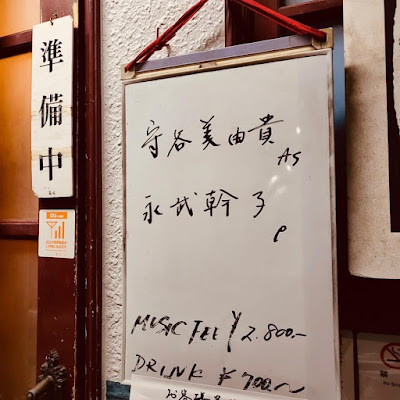 準備中
守谷美由貴
AS
永武幹子
P
MUSIC FEE ¥2.800.-
DRINK ¥700.-